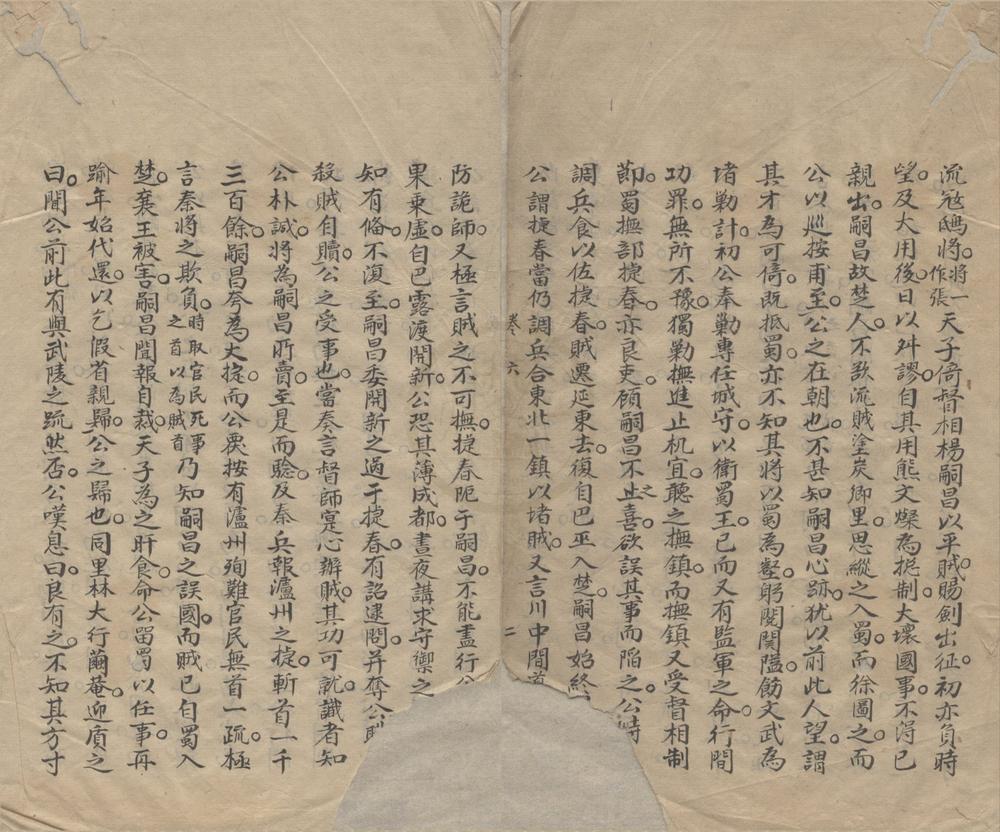 流寇鴟將將一作張天子倚督相楊嗣昌以平賊賜劍出征初亦負時
望及大用後日以舛謬自其用熊文燦為揔制大壞國事不得已
親出嗣昌故楚人不欲流賊塗炭鄉里思縱之入蜀而徐圖之而
公以巡按甫至公之在朝也不甚知嗣昌心跡犹以前此人望謂
其才為可倚既抵蜀亦不知其將以蜀為壑躬閱関隘飭文武為
堵勦計初公奉勦專任城守以衛蜀王已而又有監軍之命行間
功罪無所不豫獨勦撫進止机宜聽之撫鎮而撫鎮又受督相制
節蜀撫邵捷春亦良吏顧嗣昌不止之喜欲誤其事而陷之公
調兵食以佐捷春賊遷延東去復自巴巫入楚嗣昌始終
公謂捷春當仍調兵合東北一鎮以堵賊又言川中間
卷六 二
防詭師又極言賊之不可撫捷春阨于嗣昌不能盡行
果乘虛自巴露渡開新公恐其薄成都晝夜講求守禦之
知有俻不復至嗣昌委開新之過于捷春有詔逮問并奪公
殺賊自贖公之受事也當奏言督師寔心辦賊其功可就識者知
公朴誠將為嗣昌所賣至是而驗及秦兵報瀘州之捷斬首一千
三百餘嗣昌夸為大捷而公覈按有瀘州殉難官民無首一疏極
言秦將之欺負時取官民死事之首以為賊首乃知嗣昌之誤國而賊已自蜀入
楚襄王被害嗣昌聞報自裁天子為之旰食命公留蜀以任事再
踰年始代還以乞假省親歸公之歸也同里林大行繭菴迎質之
曰聞公前此有與武陵之疏然否公嘆息曰良有之不知其方寸